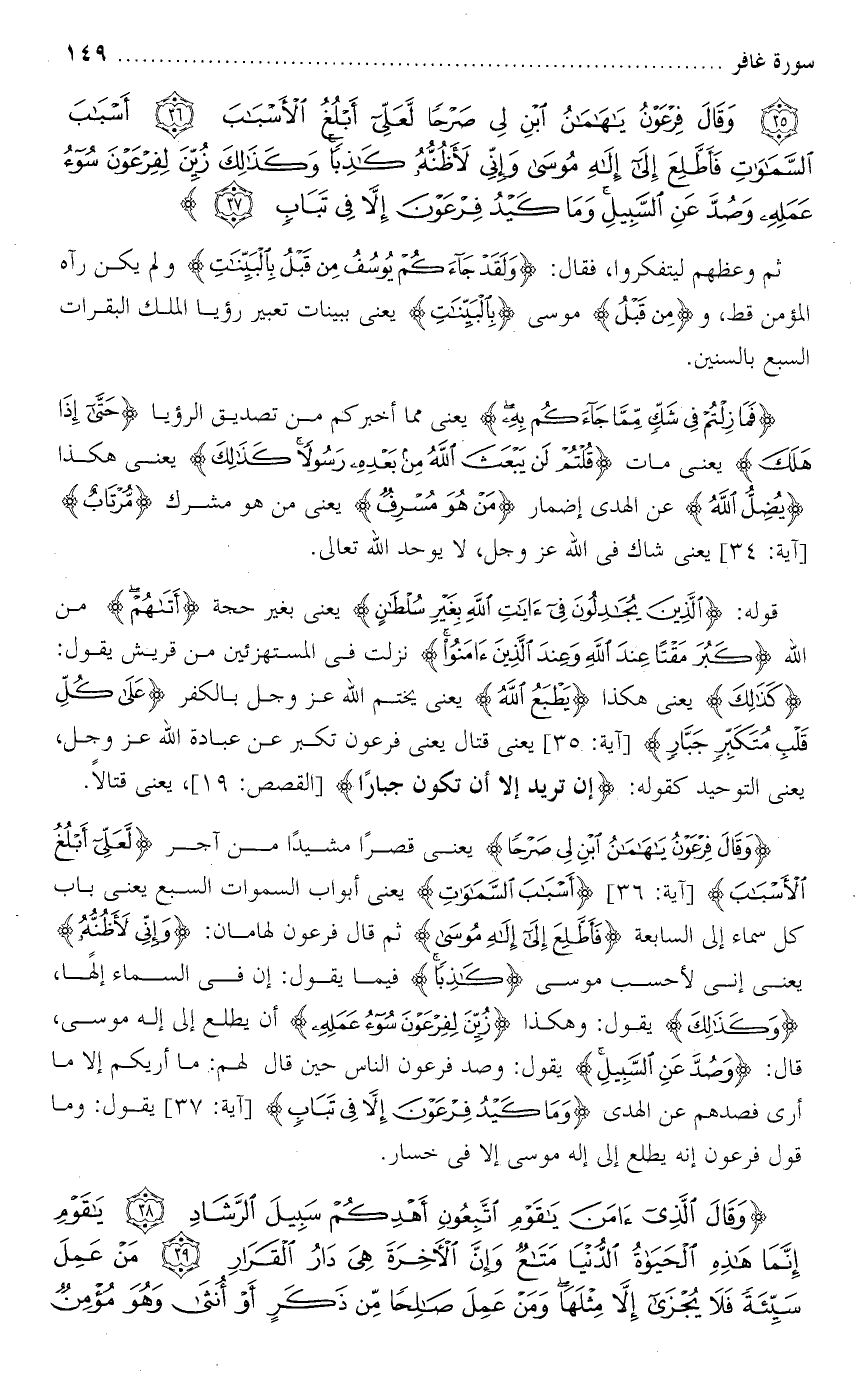 سورة غافر ........................................................ ١٤٩
(٣٥) وَقَالَ فِرْعَوْنُ يَٰهَٰمَٰنُ ٱبْنِ لِى صَرْحًا لَّعَلِّىٓ أَبْلُغُ ٱلْأَسْبَٰبَ (٣٦) أَسْبَٰبَ
ٱلسَّمَٰوَٰتِ فَأَطَّلِعَ إِلَىٰٓ إِلَٰهِ مُوسَىٰ وَإِنِّى لَأَظُنُّهُۥ كَٰذِبًا ۚ وَكَذَٰلِكَ زُيِّنَ لِفِرْعَوْنَ سُوٓءُ
عَمَلِهِۦ وَصُدَّ عَنِ ٱلسَّبِيلِ ۚ وَمَا كَيْدُ فِرْعَوْنَ إِلَّا فِى تَبَابٍ (٣٧) ﴾
ثم وعظهم ليتفكروا، فقال: ﴿وَلَقَدْ جَآءَكُمْ يُوسُفُ مِن قَبْلُ بِٱلْبَيِّنَٰتِ﴾ ولم يكن رآه
المؤمن قط، و﴿مِن قَبْلُ﴾ موسى ﴿بِٱلْبَيِّنَٰتِ﴾ يعنى ببينات تعبير رؤيا الملك البقرات
السبع بالسنين.
﴿فَمَا زِلْتُمْ فِى شَكٍّ مِّمَّا جَآءَكُم بِهِۦ ۖ﴾ يعنى مما أخبركم من تصديق الرؤيا ﴿حَتَّىٰٓ إِذَا
هَلَكَ﴾ يعنى مات ﴿قُلْتُمْ لَن يَبْعَثَ ٱللَّهُ مِنۢ بَعْدِهِۦ رَسُولًا ۚ كَذَٰلِكَ﴾ يعنى هكذا
﴿يُضِلُّ ٱللَّهُ﴾ عن الهدى إضمار ﴿مَنْ هُوَ مُسْرِفٌ﴾ يعنى من هو مشرك ﴿مُّرْتَابٌ﴾
[آية: ٣٤] يعنى شاك فى الله عز وجل، لا يوحد الله تعالى.
قوله: ﴿ٱلَّذِينَ يُجَٰدِلُونَ فِىٓ ءَايَٰتِ ٱللَّهِ بِغَيْرِ سُلْطَٰنٍ﴾ يعنى بغير حجة ﴿أَتَىٰهُمْ ۖ﴾ من
الله ﴿كَبُرَ مَقْتًا عِندَ ٱللَّهِ وَعِندَ ٱلَّذِينَ ءَامَنُوا۟ ۚ﴾ نزلت فى المستهزئين من قريش يقول:
﴿كَذَٰلِكَ﴾ يعنى هكذا ﴿يَطْبَعُ ٱللَّهُ﴾ يعنى يختم الله عز وجل بالكفر ﴿عَلَىٰ كُلِّ
قَلْبِ مُتَكَبِّرٍ جَبَّارٍ﴾ [آية: ٣٥] يعنى قتال يعنى فرعون تكبر عن عبادة الله عز وجل،
يعنى التوحيد كقوله: ﴿إن تريد إلا أن تكون جبارًا﴾ [القصص: ١٩]، يعنى قتالاً.
﴿وَقَالَ فِرْعَوْنُ يَٰهَٰمَٰنُ ٱبْنِ لِى صَرْحًا﴾ يعنى قصرًا مشيدًا من آجر ﴿لَّعَلِّىٓ أَبْلُغُ
ٱلْأَسْبَٰبَ﴾ [آية: ٣٦] ﴿أَسْبَٰبَ ٱلسَّمَٰوَٰتِ﴾ يعنى أبواب السموات السبع يعنى باب
كل سماء إلى السابعة ﴿فَأَطَّلِعَ إِلَىٰٓ إِلَٰهِ مُوسَىٰ﴾ ثم قال فرعون لهامان: ﴿وَإِنِّى لَأَظُنُّهُۥ﴾
يعنى إنى لأحسب موسى ﴿كَٰذِبًا ۚ﴾ فيما يقول: إن فى السماء إلهًا،
﴿وَكَذَٰلِكَ﴾ يقول: وهكذا ﴿زُيِّنَ لِفِرْعَوْنَ سُوٓءُ عَمَلِهِۦ﴾ أن يطلع إلى إله موسى،
قال: ﴿وَصُدَّ عَنِ ٱلسَّبِيلِ ۚ﴾ يقول: وصد فرعون الناس حين قال لهم: ما أريكم إلا ما
أرى فصدهم عن الهدى ﴿وَمَا كَيْدُ فِرْعَوْنَ إِلَّا فِى تَبَابٍ﴾ [آية: ٣٧] يقول: وما
قول فرعون إنه يطلع إلى إله موسى إلا فى خسار.
﴿وَقَالَ ٱلَّذِىٓ ءَامَنَ يَٰقَوْمِ ٱتَّبِعُونِ أَهْدِكُمْ سَبِيلَ ٱلرَّشَادِ (٣٨) يَٰقَوْمِ
إِنَّمَا هَٰذِهِ ٱلْحَيَوٰةُ ٱلدُّنْيَا مَتَٰعٌ وَإِنَّ ٱلْأَخِرَةَ هِىَ دَارُ ٱلْقَرَارِ (٣٩) مَنْ عَمِلَ
سَيِّئَةً فَلَا يُجْزَىٰٓ إِلَّا مِثْلَهَا ۖ وَمَنْ عَمِلَ صَٰلِحًا مِّن ذَكَرٍ أَوْ أُنثَىٰ وَهُوَ مُؤْمِنٌ